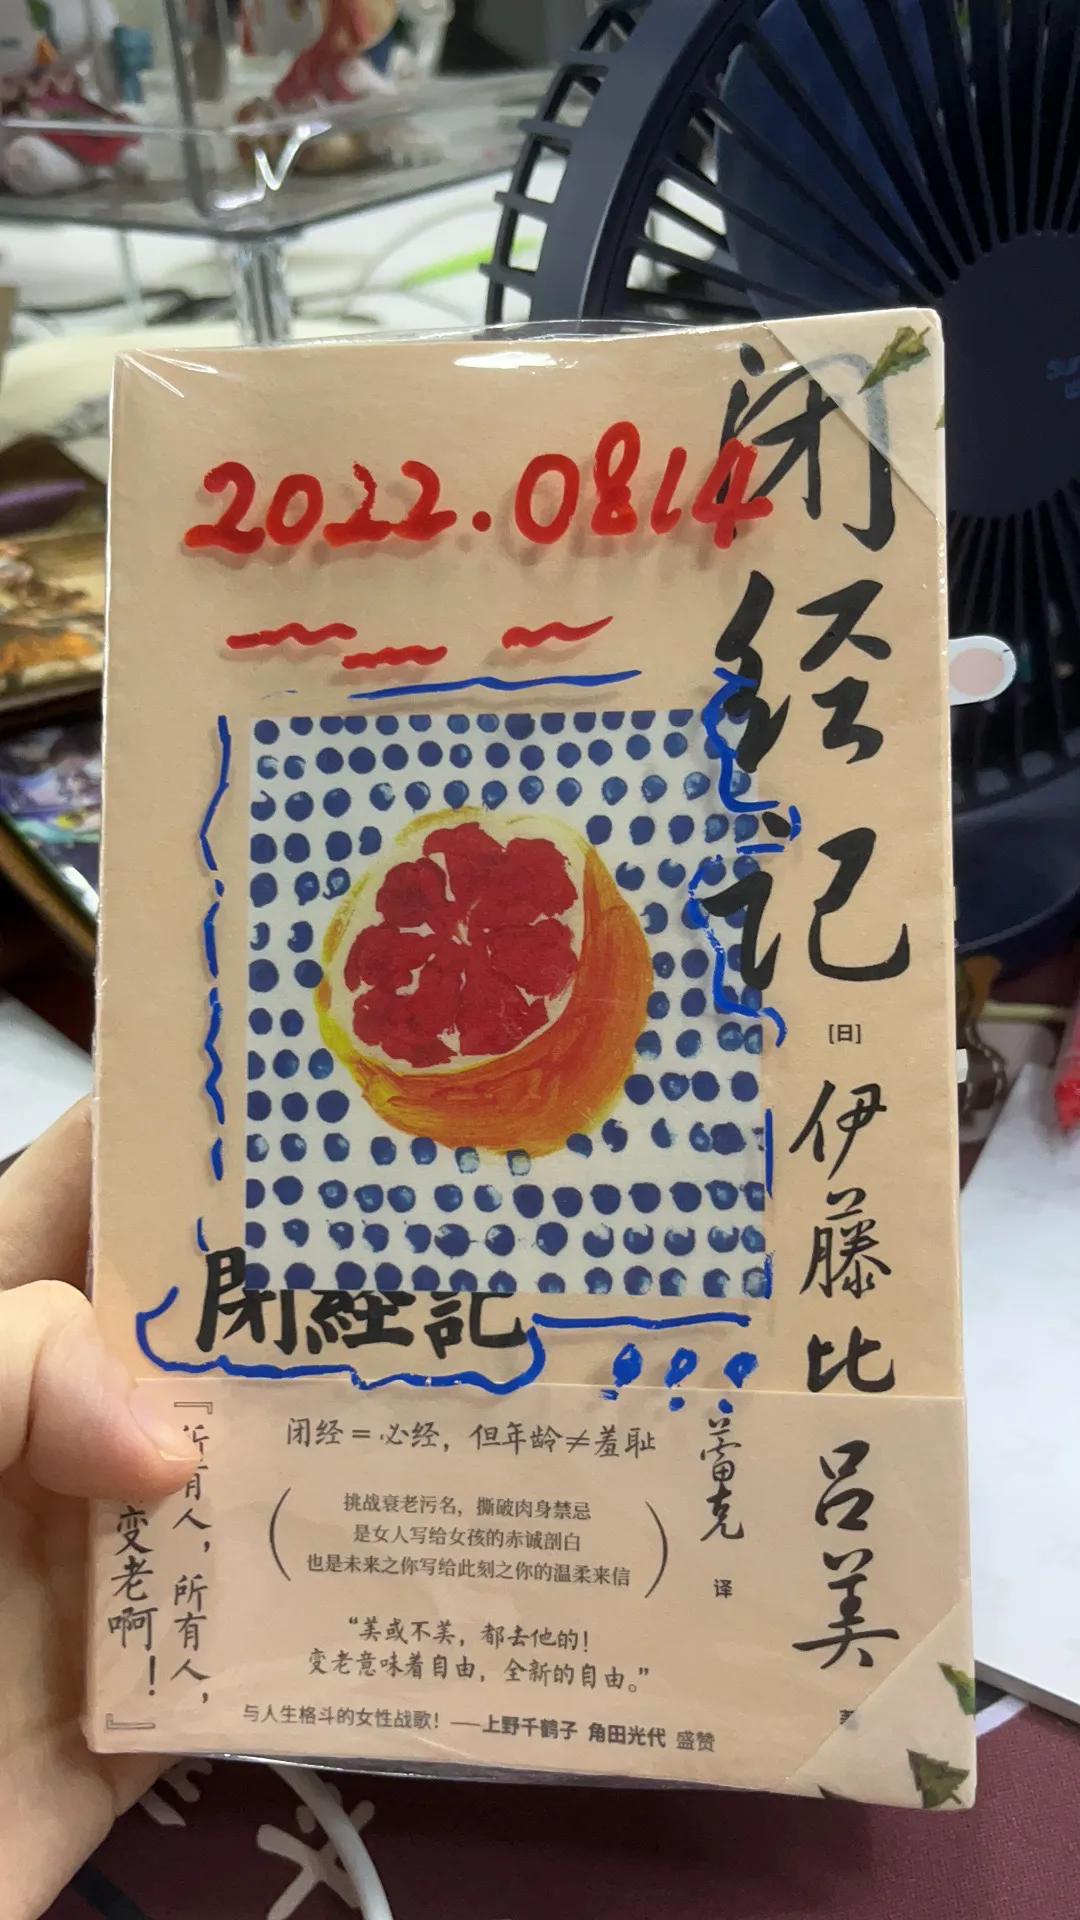 2022.0814
闭经记
[日]
伊藤比吕美
閉經記
『所有人，所有人，
变老啊！』
闭经＝必经，但年龄≠羞耻
挑战衰老污名，撕破肉身禁忌
是女人写给女孩的赤诚剖白
也是未来之你写给此刻之你的温柔来信
“美或不美，都去他的！
变老意味着自由，全新的自由。”
与人生格斗的女性战歌！——上野千鹤子 角田光代 盛赞
蕾克 译